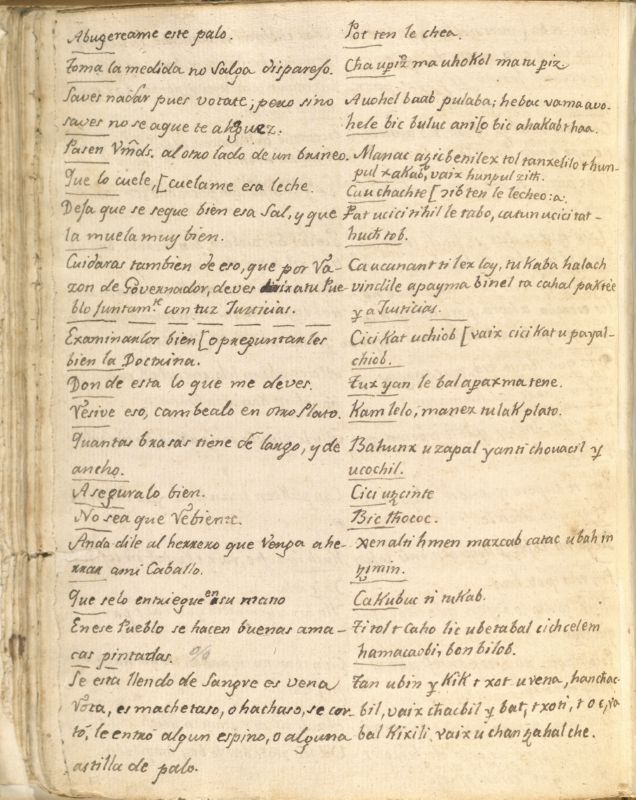 Abugereame este palo. Pot ten le chea.
Toma la medida no salga disparejo. Chaupiz ma uhoKol matu piz
Saves nadar pues votate; pero sino Auohel baab pulaba; hebac vama auo-
saves no se aque te ahguez. hele bic buluc anilo bic ahakab thaa.
Pasen Vmds. al otro lado de un brineo. Manac azicbenilex tol tanxelilo t hun-
pul xakab, vaix hunpul zitt.
Que lo cuele, [cuelame esa leche. Cuuchachte [ ten le lecheo:a.
Deja que se seque bien esa Sal, y que Pat ucici tihil le tabo, catun ucici tat-
la muela muy bien. huch tob.
Cuidaras tambien de eso, que por Va- Caucanant ti lex loy, tu Kaba halach
zon de Governador, deves atu Pue- vinicile apayma binel ta cahal paKtee
blo juntamte con tuz Justicias. y a Justicias.
Examinarlos bien [o preguntarles Cici Kat uchiob [vaix cici Kat u payal-
bien la Doctrina. chiob.
Donde esta lo que me deves. Tux yan le bal apaxmatene.
Vesive eso, cambealo en otro Plato. Kam lelo, manex tulaK plato.
Quantas brasas tiene de largo, y de Bahunx uzapal yanti chouacil y
ancho. ucochil.
Aseguralo bien. Cici uzcinte
No sea que Vebiente. Bic thococ.
Anda dile al herrero que Venga ahe- xen alti hmen mazcab catac ubah in
rrar ami Caballo. tzimin.
Que selo entriegue en su mano CaKubuc ti tuKab.
Enese Pueblo se hacen buenas ama- Ti tol t Caho lic ubetabal cichcelem
cas pintadas. hamacaobi, bonbilob.
Se esta llendo de Sangre es vena Tan ubin y KiK t xot uvena, hanchac-
Vota, es machetaso, o hachaso, se cor- bil, vaix chacbil y bat, t xoti,
tó, le entró algun espino, o alguna bal Kixili vaix u chan zahal che.
astilla de palo.